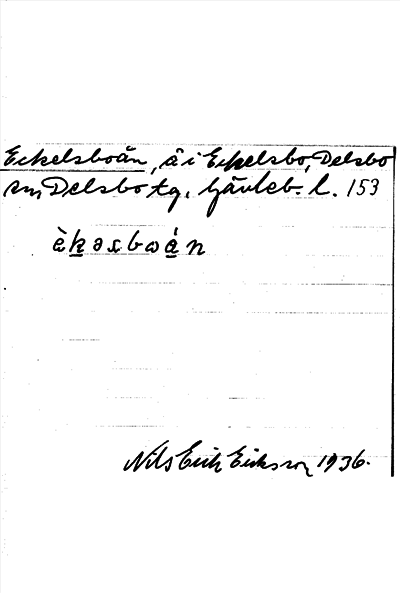 Eckelsboån, å i Eckelsbo, Delsbo
sn, Delsbo tg, Gävleb. l. 153
Nils Erik Eriksson 1936.